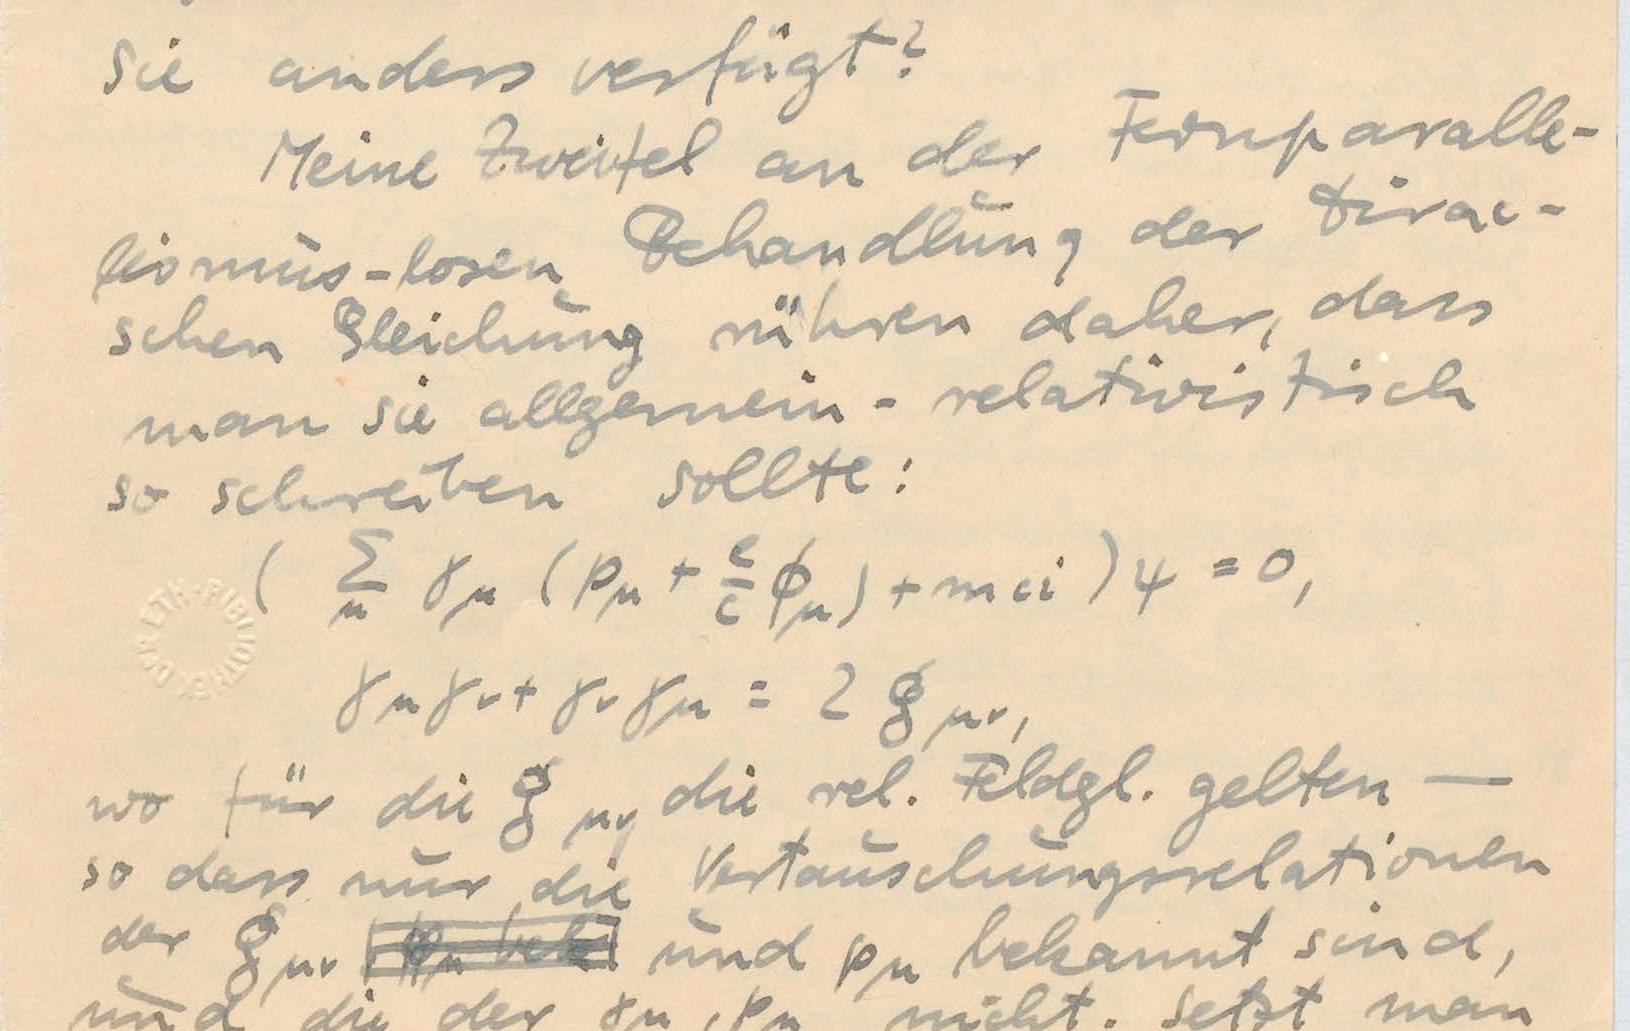 Sie anders verfügt?
Meine Zweifel an der Fernparalle-
lismus-losen Behandlung der Dirac-
schen Gleichung rühren daher, dass
man sie allgemein-relativistisch
so schreiben sollte:
( Σ_μ γ_μ (p_μ + e/c ϕ_μ) + mci ) ψ = 0,
γ_μ γ_ν + γ_ν γ_μ = 2 g_μν,
DER ETH-BIBLIOTHEK
wo für die g_μν die rel. Feldgl. gelten —
so dass nur die Vertauschungsrelationen
der g_μν und p_μ bekannt sind,
und die der γ_μ, p_μ nicht. Setzt man